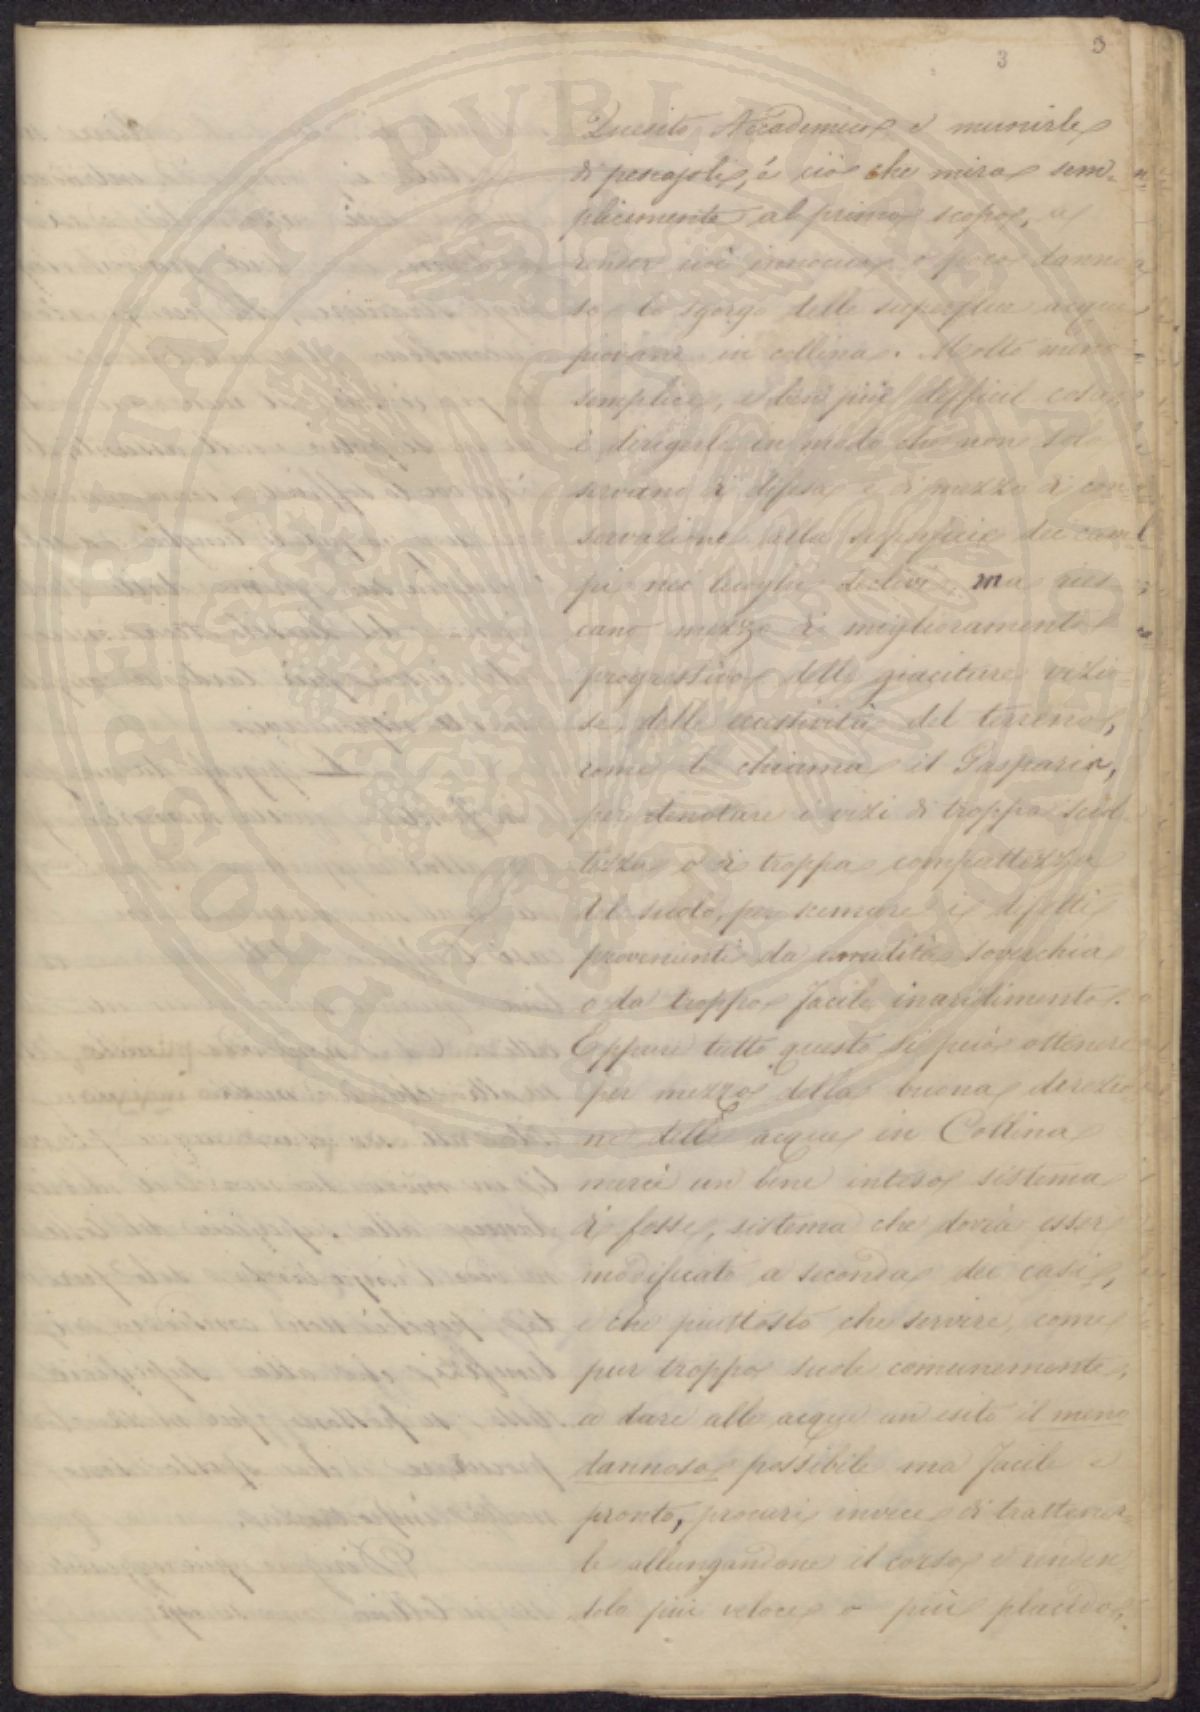 3 3
Quesito Accademico e munirle
di pescajoli, é ciò che mira sem-
plicemente al primo scopo, a
render cioè innocuo o poco danno
so lo sgorgo delle superflue acque
piovane in collina. Molto meno
semplice, e ben più difficil cosa
è dirigerle in modo che non solo
servano di difesa e di mezzo di con-
servazione alla superficie dei cam-
pi nei luoghi declivi, ma ries
cano mezzo di miglioramento
progressivo delle giaciture vizio-
se, delle del terreno,
come le chiama il Gasparin,
per denotare i vizi di troppa sciol-
tezza o di troppa compattezza
del suolo, per scemare i difetti
provenienti da umidità soverchia
o da troppo facile inaridimento.
Eppure tutto questo si può ottenere
per mezzo della buona direzio-
ne delle acque in Collina
mercè un bene inteso sistema
di fosse, sistema che dovrà esser
modificato a seconda dei casi,
e che piuttosto che servire, come
pur troppo suole comunemente,
a dare alle acque un esito il meno
dannoso possibile ma facile e
pronto, procuri invece di trattener-
le allungandone il corso e renden
dolo più veloce o più placido,
PROSPERITATI PUBLICAE AUGENDAE